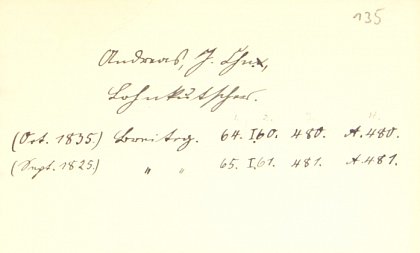 135
Andreas, J. Chr.,
Lohnkutscher.
(Oct. 1835.) Breiteg. 64. I.60. 480. A.480.
(Sept. 1825.) " " 65. I.61. 481. A.481.